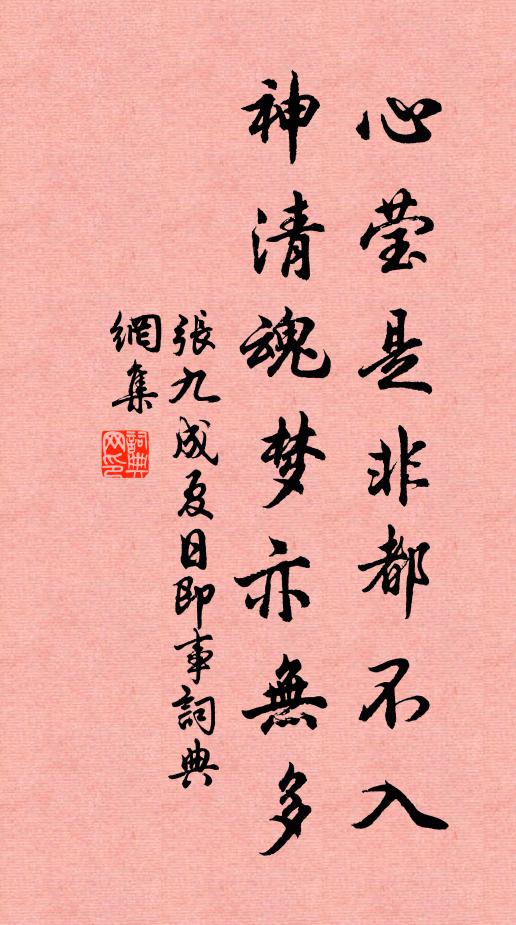 心莹是非都不入
神清魂梦亦無多
張九成夏日即事詞典
網集
詞典
网印